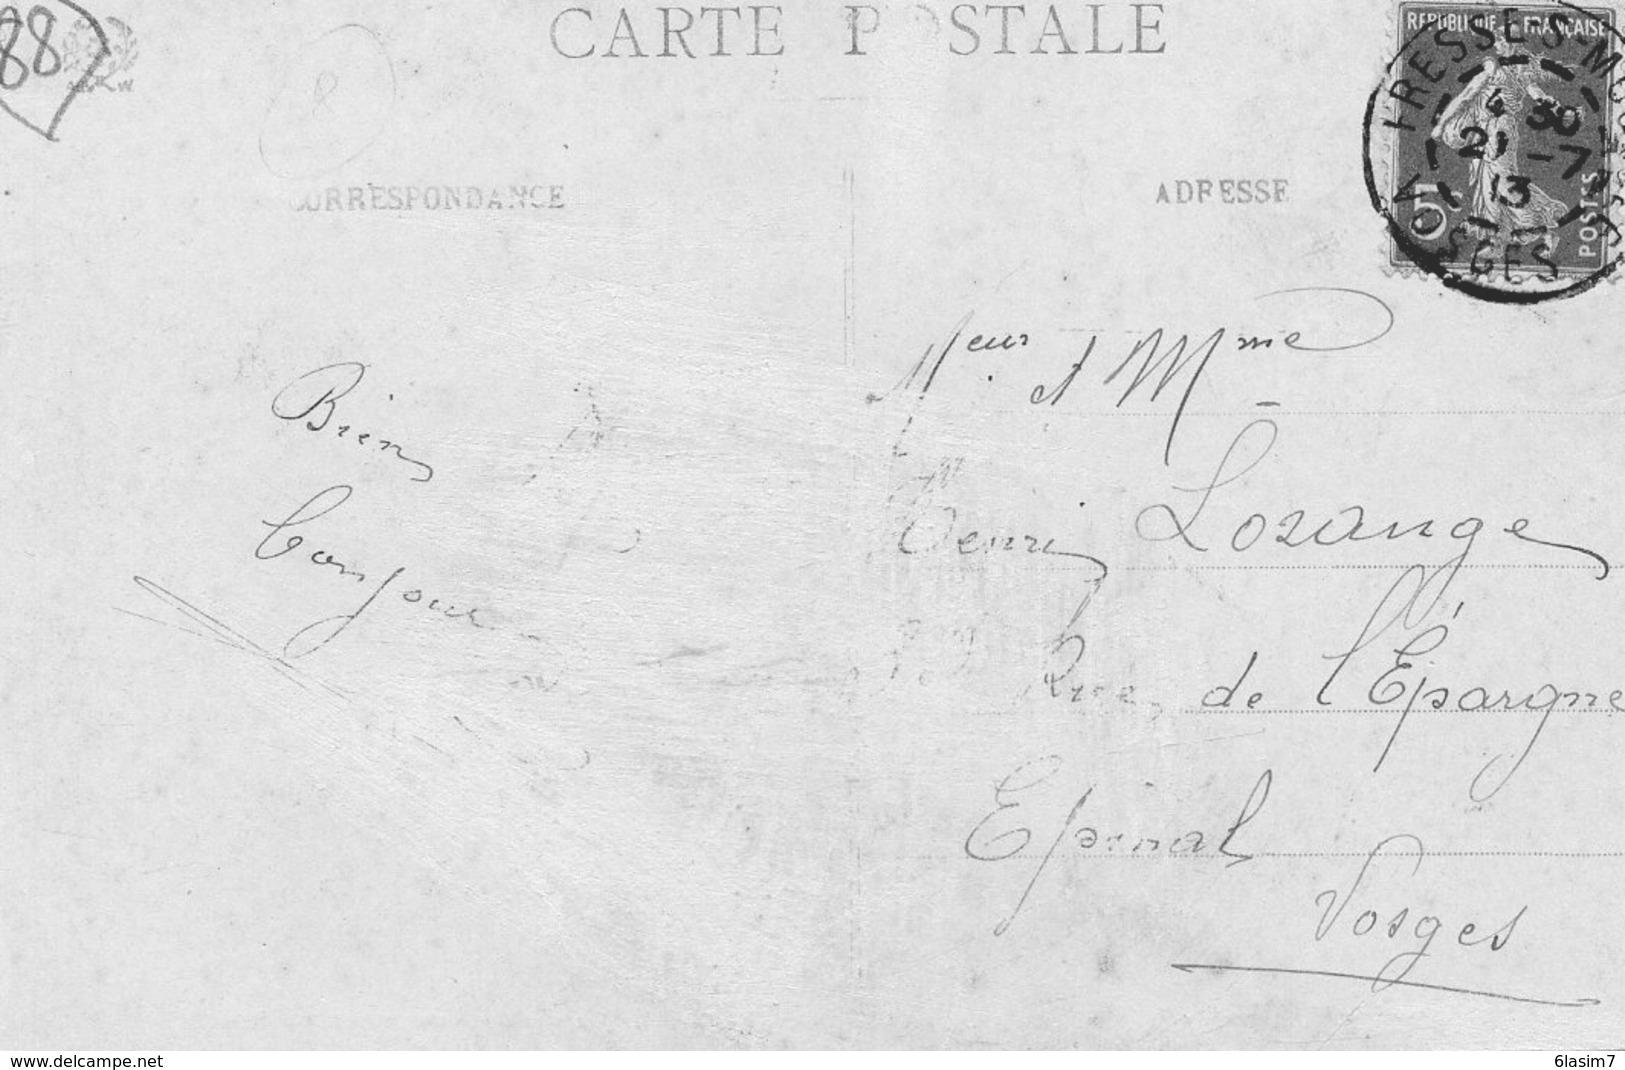 88
CARTE POSTALE
CORRESPONDANCE
ADRESSE
REPUBLIQUE FRANÇAISE
FRESSE-S-MOSELLE
4 30
21 -7
13
VOSGES
5c
POSTES
8
Bien
bonjour
Meur et Mme
Henri Lorange
Rue de l'Épargne
Epinal
Vosges
www.delcampe.net
6lasim7